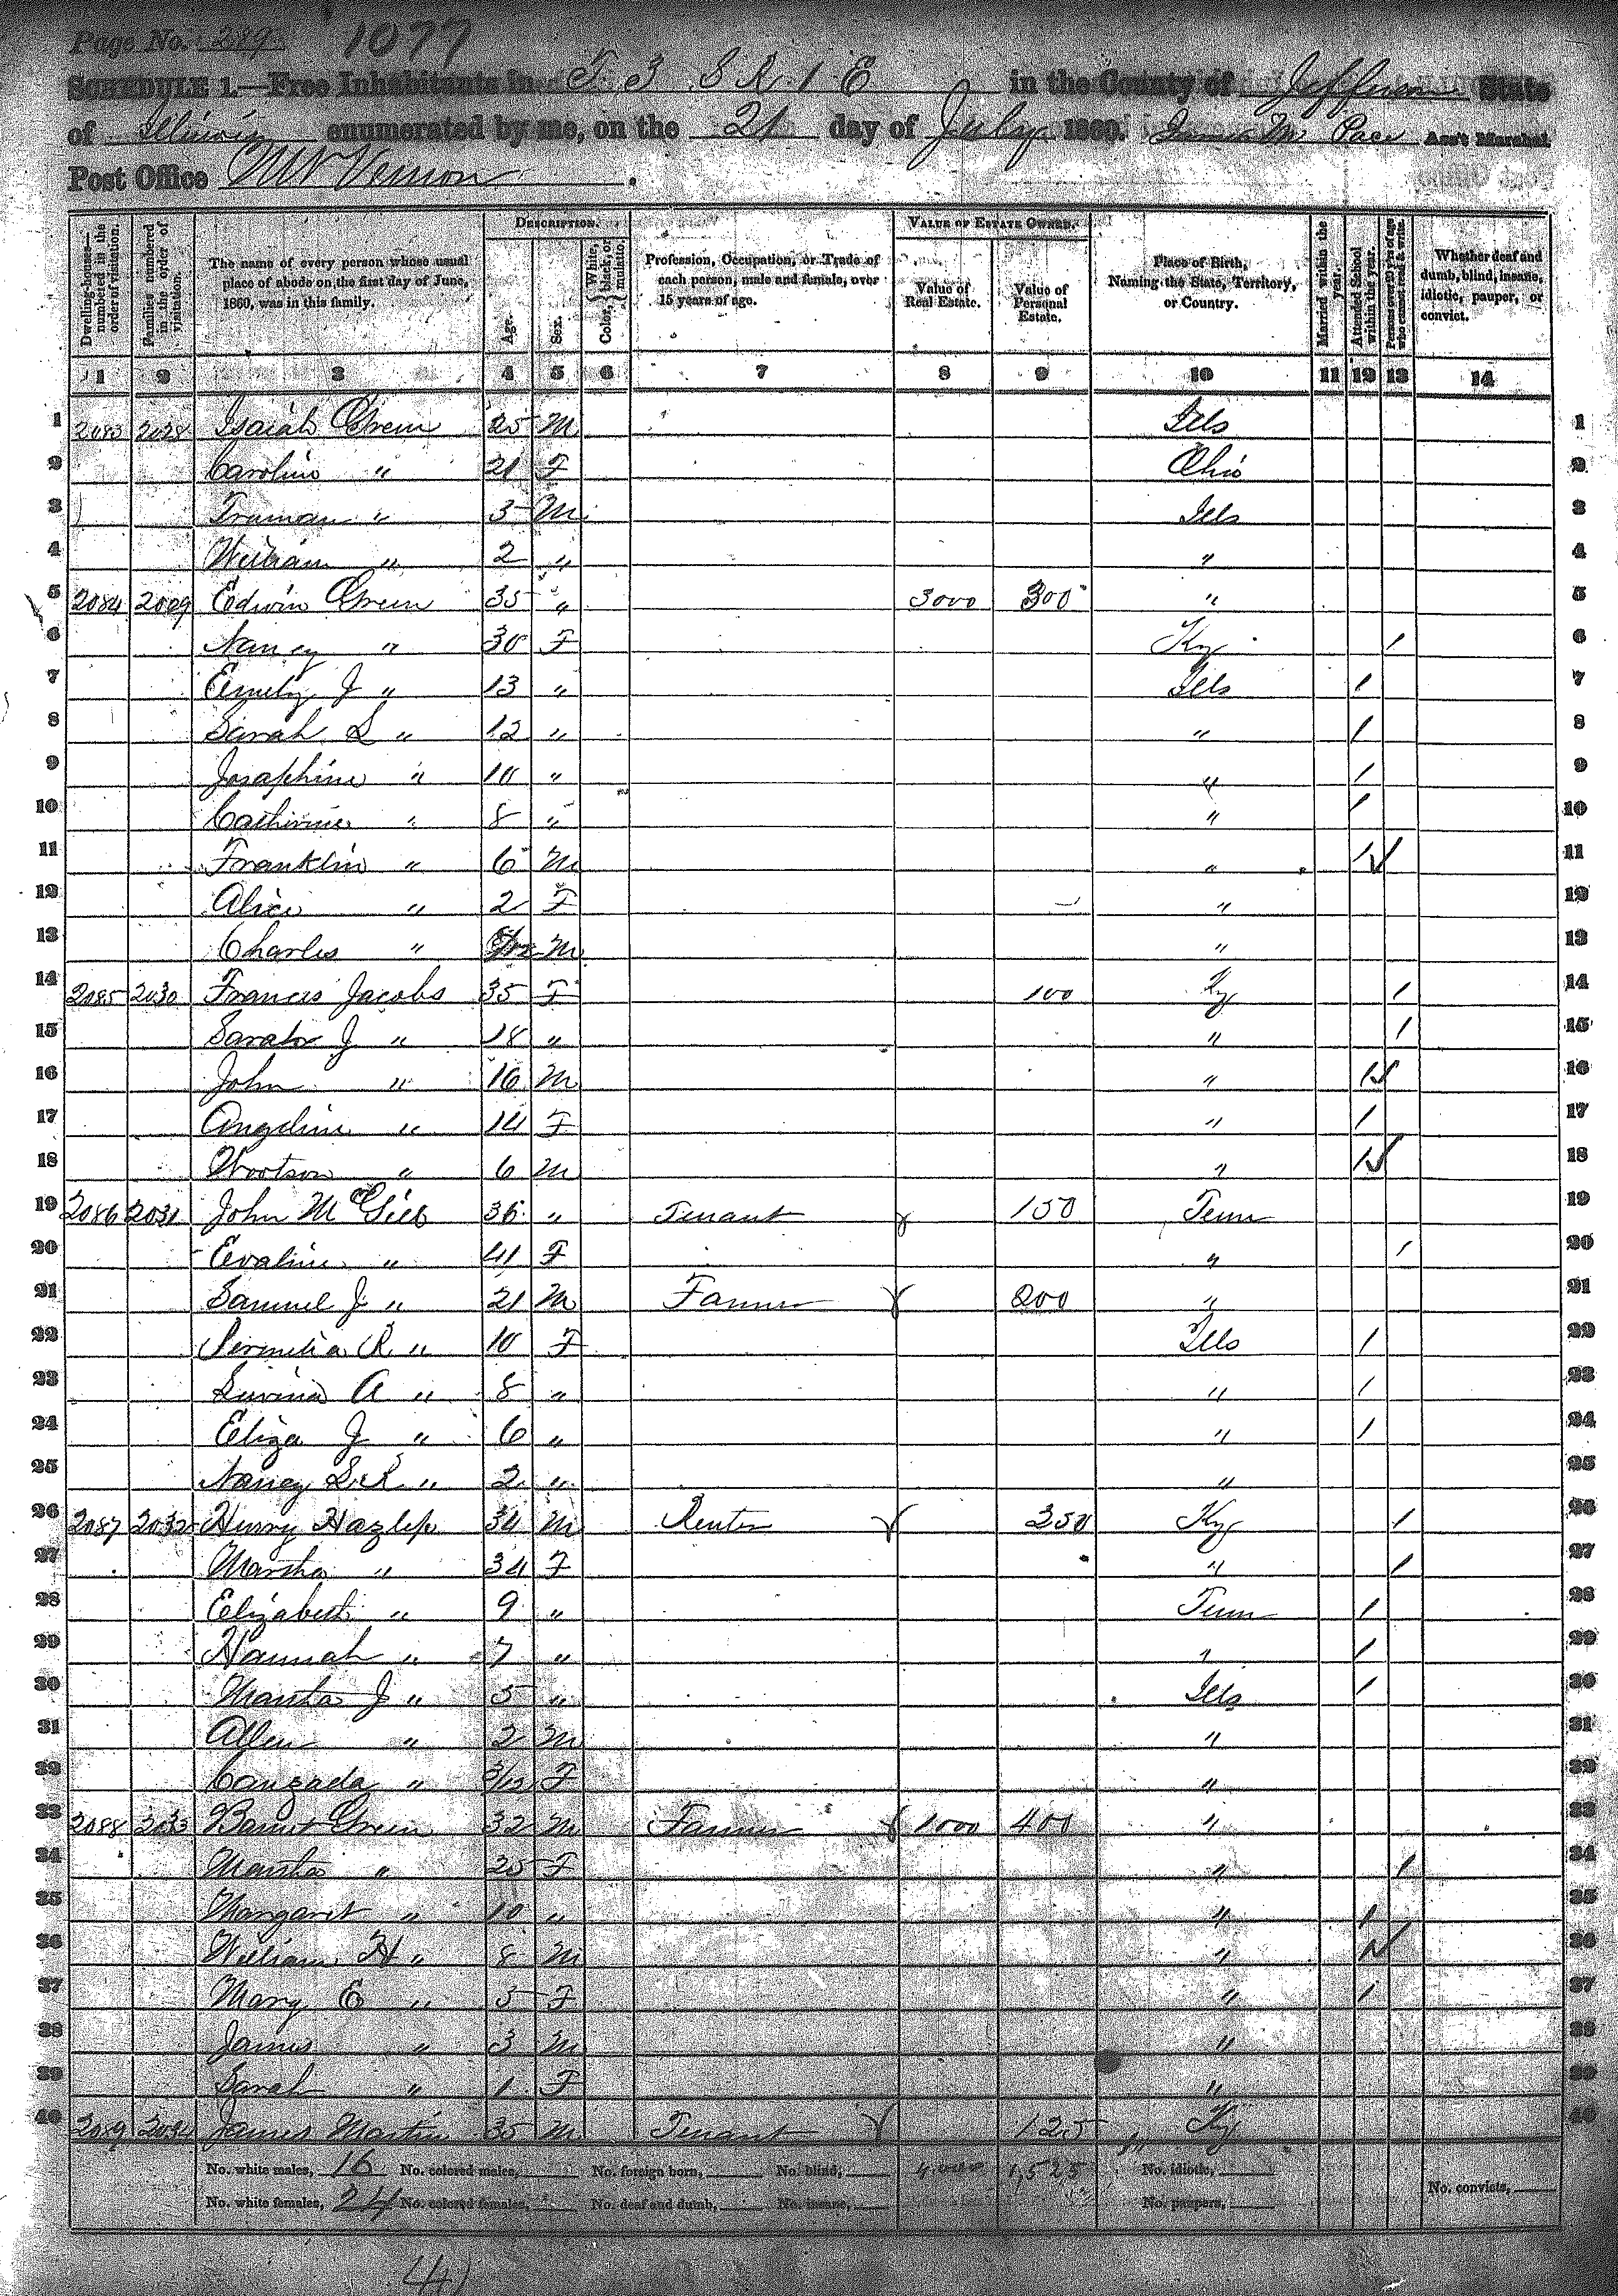 Page No. 289 1077
SCHEDULE 1.—Free Inhabitants in T 3 S R 1 E in the County of Jefferson State
of Illinois enumerated by me, on the 21 day of July 1860. James M Pace Ass't Marshal
Post Office Mt Vernon.
DESCRIPTION. VALUE OF ESTATE OWNED.
Dwelling-houses—numbered in the order of visitation. Families numbered in the order of visitation. The name of every person whose usual place of abode on the first day of June, 1860, was in this family. Age. Sex. Color, {White, black, or mulatto. Profession, Occupation, or Trade of each person, male and female, over 15 years of age. Value of Real Estate. Value of Personal Estate. Place of Birth, Naming the State, Territory, or Country. Married within the year. Attended School within the year. Persons over 20 y'rs of age who cannot read & write. Whether deaf and dumb, blind, insane, idiotic, pauper, or convict.
1 2 3 4 5 6 7 8 9 10 11 12 13 14
1 2083 2028 Isaiah Green 25 M Ills 1
2 Caroline " 21 F Ohio 2
3 Truman " 3 M Ills 3
4 William " 2 " " 4
5 2084 2029 Edwin Green 35 " 3000 300 " 5
6 Nancy " 30 F Ky / 6
7 Emily J " 13 " Ills / 7
8 Sarah L " 12 " " / 8
9 Josaphine " 10 " " / 9
10 Catherine " 8 " " / 10
11 Franklin " 6 M " / 11
12 Alice " 2 F " 12
13 Charles " M " 13
14 2085 2030 Frances Jacobs 35 F 100 Ky / 14
15 Sarah J " 18 " " / 15
16 John " 16 M " / 16
17 Angeline " 14 F " / 17
18 Wootson " 6 M " / 18
19 2086 2031 John M 36 " Tenant 150 Tenn 19
20 Evaline " 41 F " / 20
21 Samuel J " 21 M Farmer 200 " 21
22 R " 10 F Ills / 22
23 Luvina A " 8 " " / 23
24 Eliza J " 6 " " / 24
25 Nancy L.R. " 2 " " 25
26 2087 2032 Henry Hazlep 34 M Renter 250 Ky / 26
27 Martha " 34 F " / 27
28 Elizabeth " 9 " Tenn / 28
29 Hannah " 7 " " / 29
30 Martha J " 5 " Ills / 30
31 Allen " 2 M " 31
32 Canzada " 3/12 F " 32
33 2088 2033 Green 32 M Farmer 1000 400 " 33
34 Martha " 25 F " / 34
35 Margaret " 10 " " / 35
36 William H " 8 M " / 36
37 Mary E " 5 F " / 37
38 James " 3 M " 38
39 Sarah " 1 F " 39
40 2089 2034 James Martin 35 M Tenant 125 Ky 40
No. white males, 16 No. colored males, No. foreign born, No. blind, 4,000 1,525 No. idiotic,
No. white females, 24 No. colored females, No. deaf and dumb, No. insane, No. paupers, No. convicts,
(4)